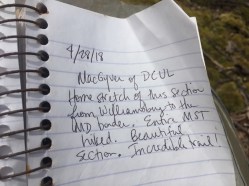 4/28/18
MacGyver of DCUL
Home stretch of this section
from Williamsburg to the
MD border. Entire MST
hiked. Beautiful
section. Incredible trail!